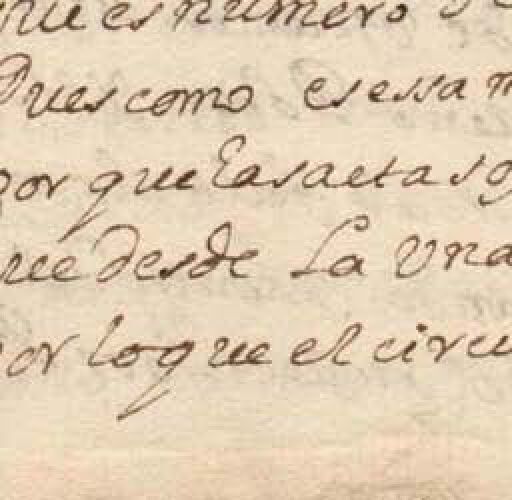 que es numero de
Pues como es essa m
por que la saeta so
que desde La Una
por lo que el circu